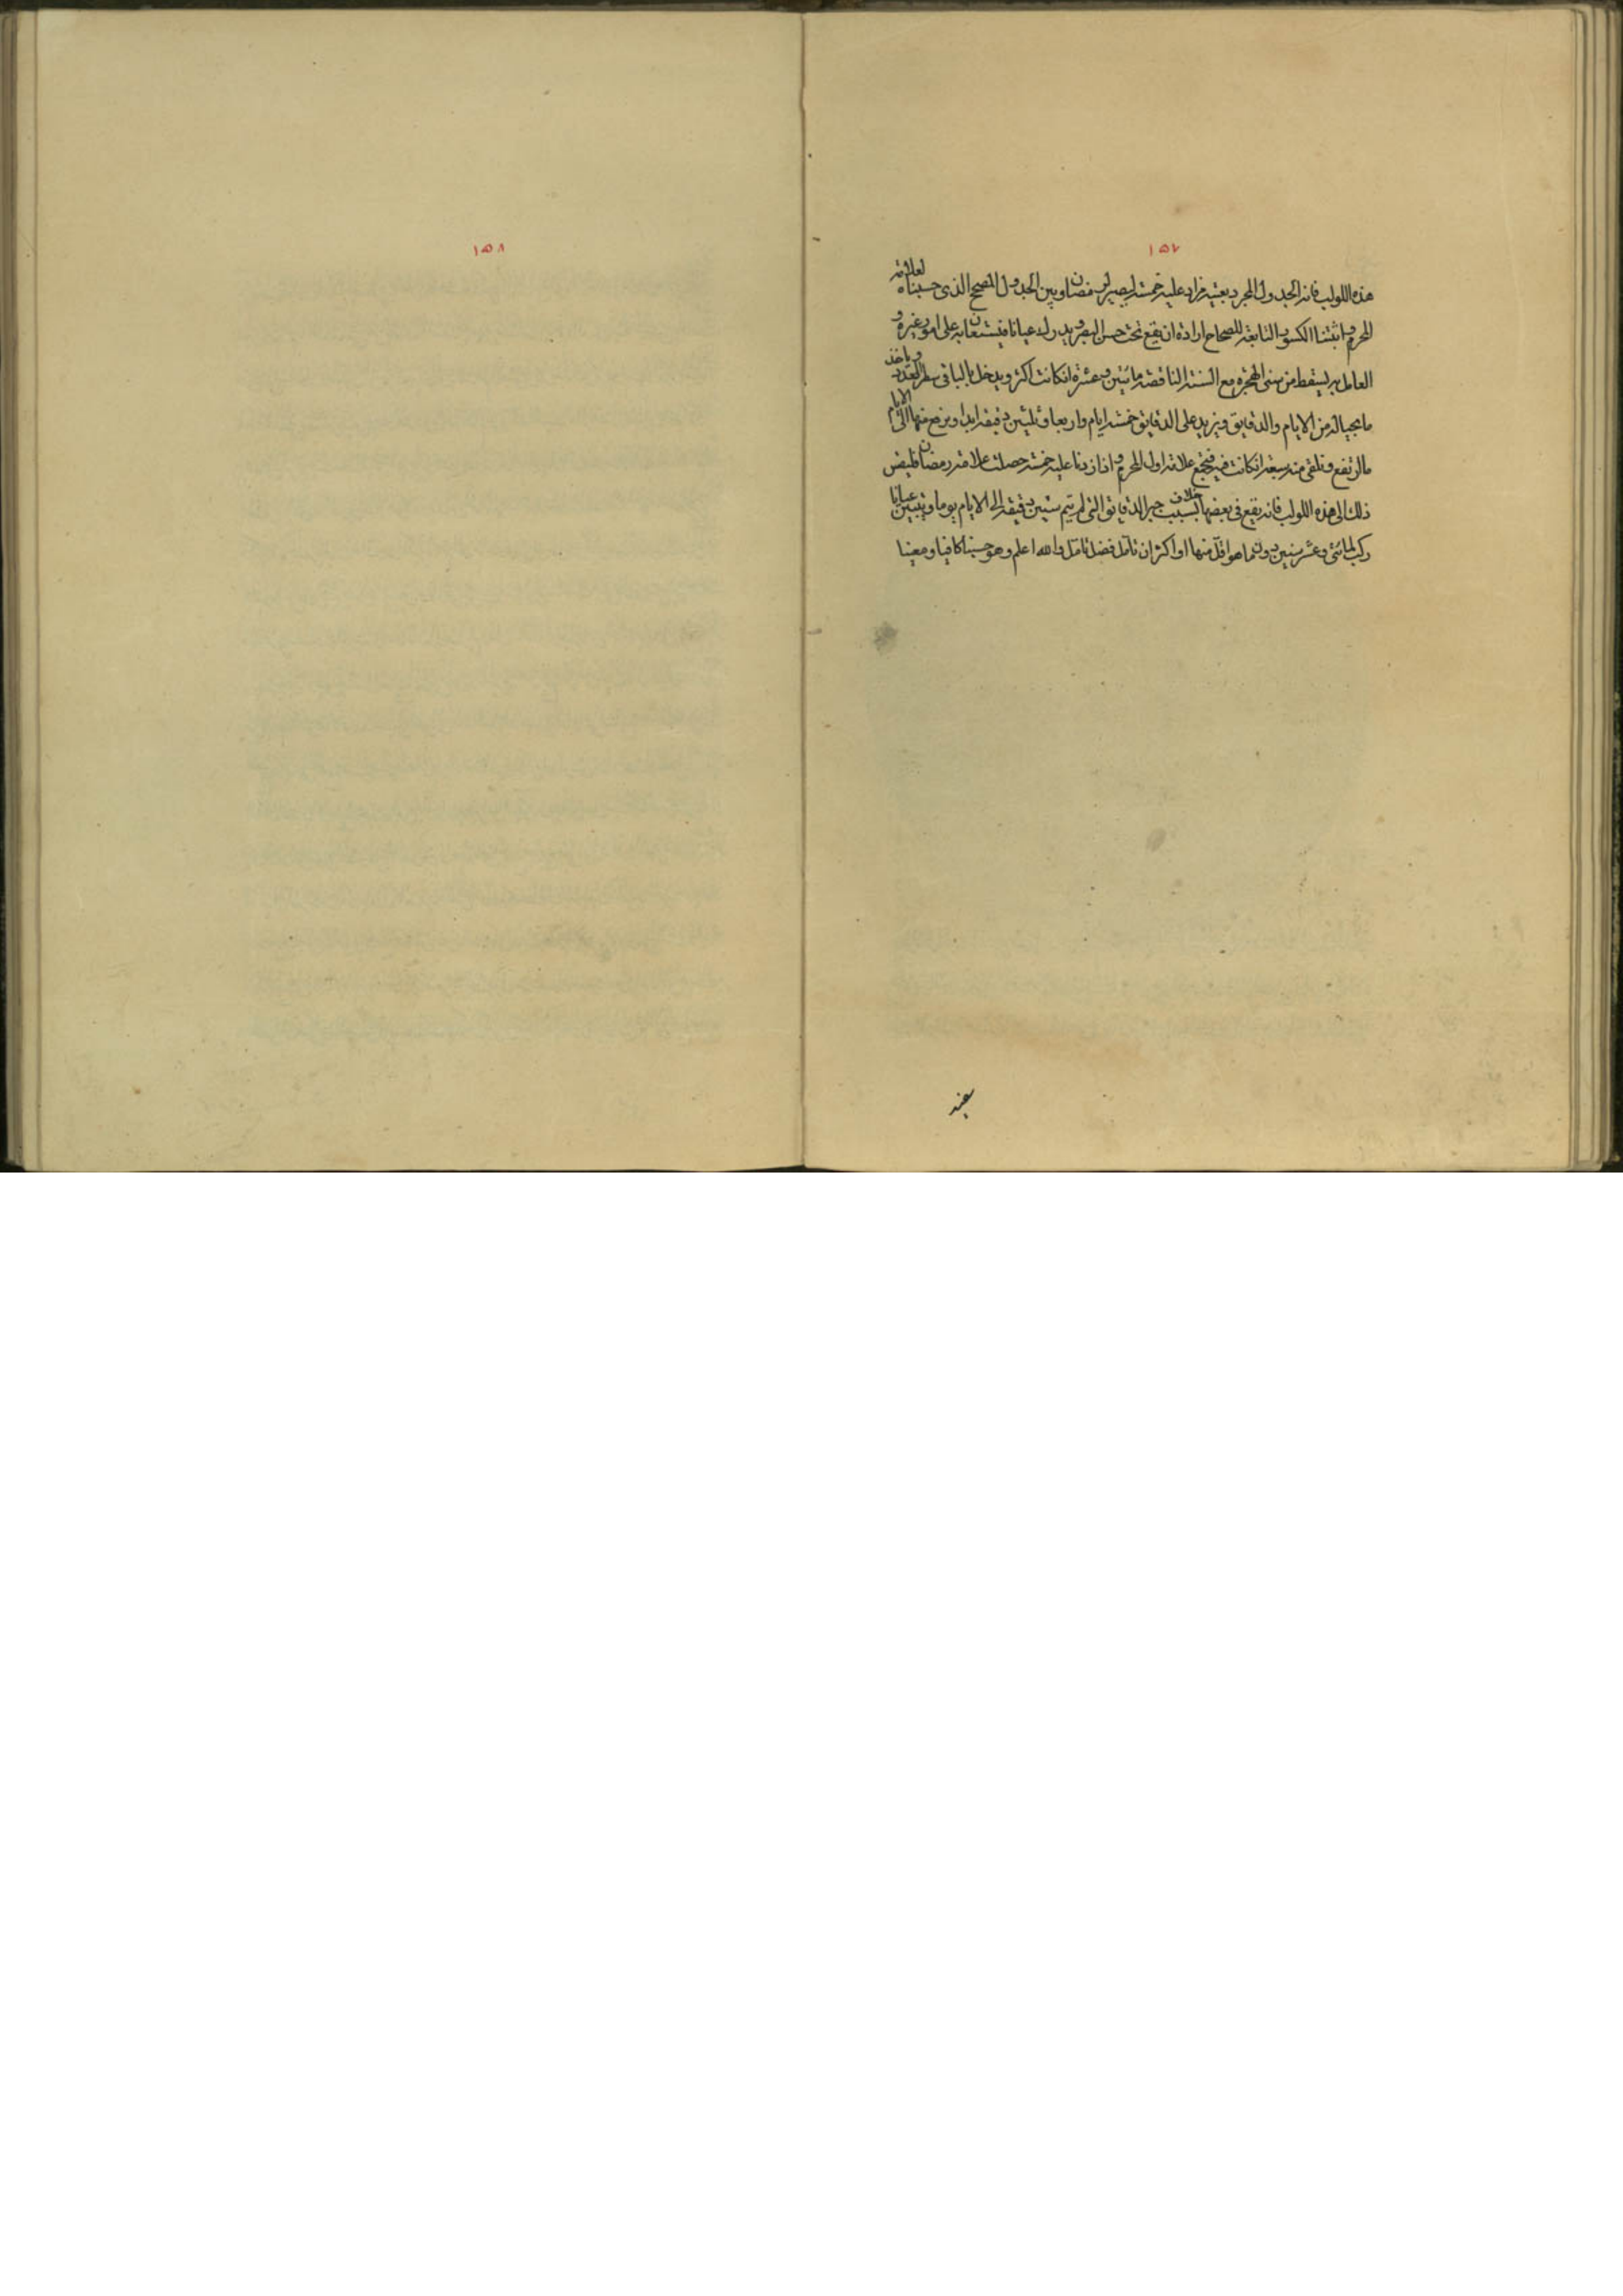 ١٥٧
هذه اللولب فانه الجدول المجرد بعينه زاد عليه خمسة ليصير لرمضان وبين الجدول المصحح الذى حسبناه لعلامة
المحرم واثبتنا الكسور التابعة للصحاح ارادة ان يقع تحت حس البصر ويدرك عيانا فيستعان به على امور غيره و
العامل به يسقط من سنى الهجرة مع السنة الناقصة مائتين وعشرة انكانت اكثر ويدخل بالباقى سطر العدد وياخذ
ما بحياله من الايام والدقايق ويزيد على الدقايق خمسة ايام واربعا وثلثين دقيقة ابدا ويرفع منها الى الايام
ما ارتفع ونلقى منه سبعة انكانت فيه فيجتمع علامة اول المحرم واذا زدنا عليه خمسة حصلت علامة رمضان فليقس
ذلك الى هذه اللولب فانه يقع فى بعضها خلاف بسبب جبر الدقايق التى لم يتم ستين دقيقة الى الايام يوما ويتبين عيانا
ركب لمائتى وعشر سنين دون ما هو اقل منها او اكثر ان تأمل فضل تأمل والله اعلم وهو حسبنا كافيا ومعينا
عند
١٥٨